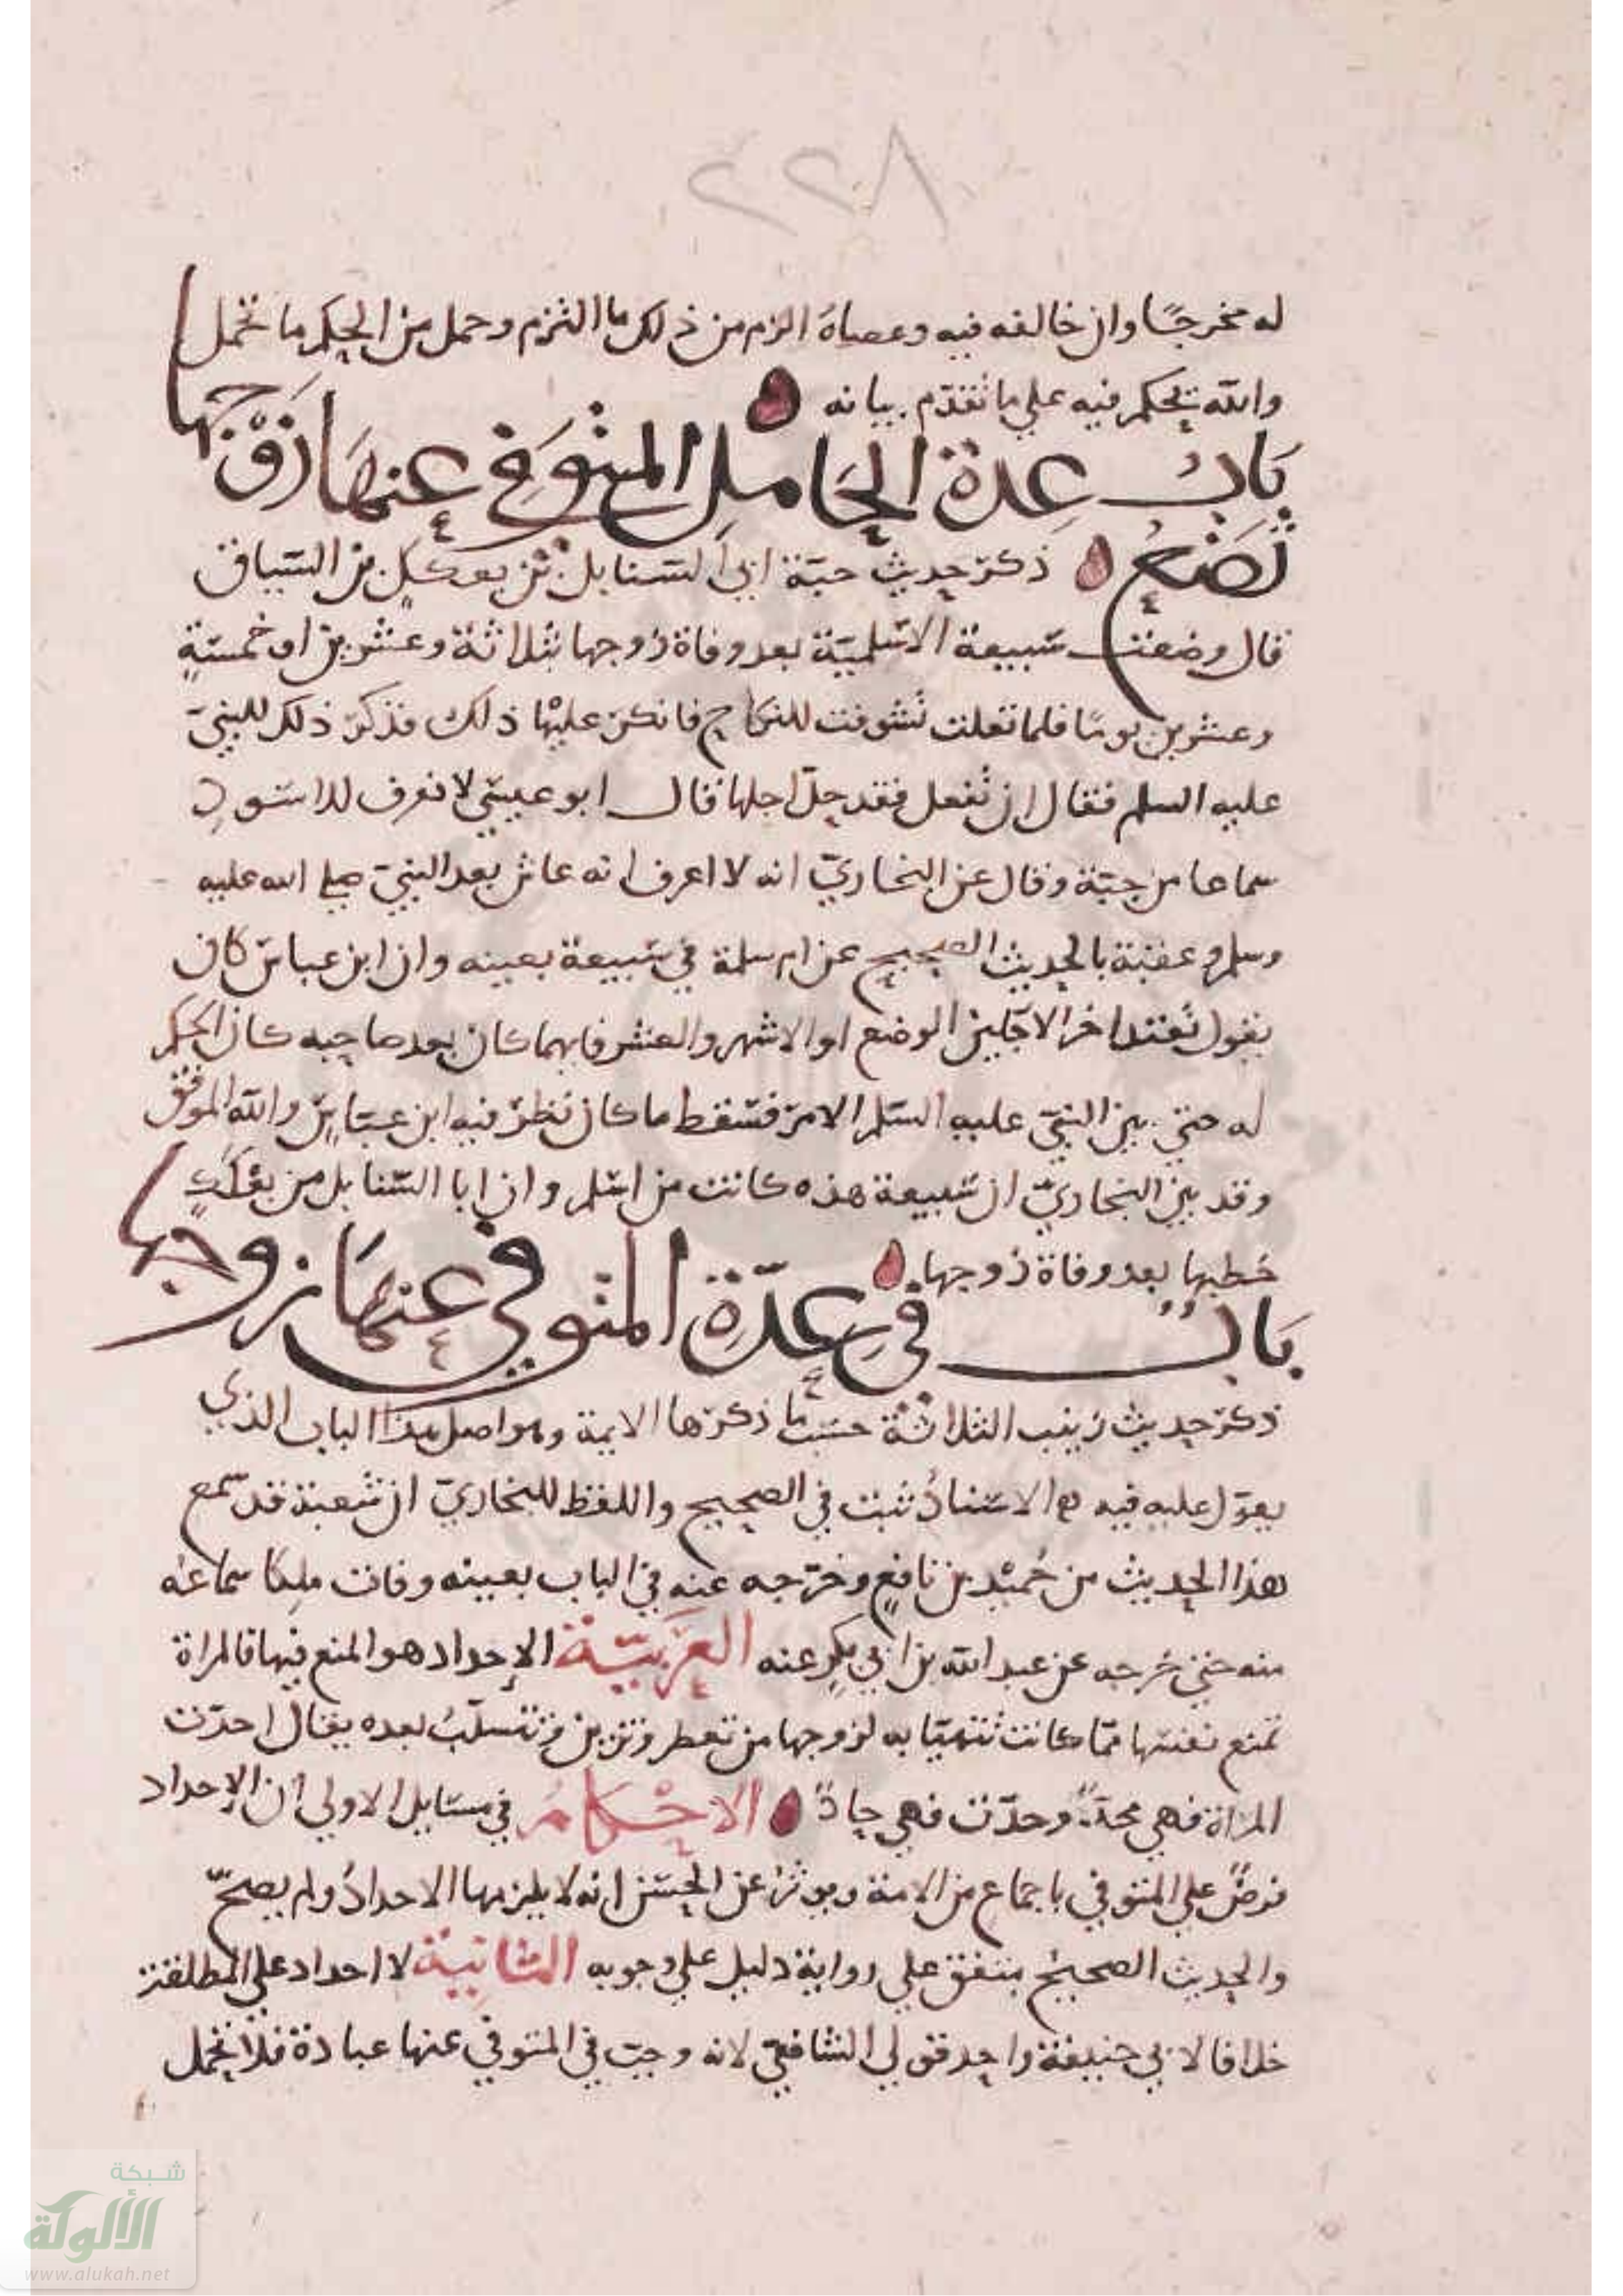 ٢٢٨
له مخرجًا وان خالفه فيه وعصاه الزم من ذلك ما التزم وحمل من الحكم ما تحمل
والله يحكم فيه علي ما تقدّم بيانه
بَابُ عِدة الحَامِلِ المتوَفي عنهَا زَوْجها
تَضَعُ ذكر حديث حبّة ابي السنابل بن بعككٍ من السياق
قال وضعت سبيعة الاسلميّة بعد وفاة زوجها بثلاثة وعشرين او خمسةٍ
وعشرين يومًا فلما تعلت تشوفت للنكاح فانكر عليها ذلك فذكر ذلك للنبيّ
عليه السلم فقال ان تفعل فقد حلّ اجلها قال ابو عيسي لا نعرف للاسودِ
سماعا من حبّة وقال عن البخاريّ انه لا اعرف انه عاش بعد النبيّ صلي الله عليه
وسلم وعقبة بالحديث الصحيح عن ام سلمة في سبيعة بعينه وان ابن عباس كان
يقول تعتد اخر الاجلين الوضع او الاشهر والعشر فايهما كان بعد صاحبه كان الحكم
له حتي بين النبيّ عليه السلم الامر فسقط ما كان نظر فيه ابن عبّاسٍ والله الموفق
وقد بين البخاريّ ان سبيعة هذه كانت من اسلم وان ابا السنابل من بعككٍ
خطبها بعد وفاة زوجها
بَابٌ في عِدّةِ المتوفي عنهَا زوجها
ذكر حديث زينب الثلاثة حسبما ذكرها الايمة وهو اصل هذا الباب الذي
يعوّل عليه فيه الاسنادُ ثبت في الصحيح واللفظ للبخاريّ ان شعبة قد سمع
هذا الحديث من حُميْد بن نافعٍ وخرّجه عنه في الباب بعينه وفات ملكا سماعهُ
منه حتي خرجه عن عبد الله بن ابي بكرٍ عنه العَربيّة الإحداد هو المنع فيها فالمراة
تمنع نفسها ممّا كانت تتهيّا به لزوجها من تعطر وتزين وتتسلّبُ بعده يقال احدّت
المراة فهي محدّةٌ وحدّت فهي حادٌّ الاحْكامُ في مسايل الاولي ان الإحداد
فرضٌ علي المتوفي باجماع من الامة ويوثرُ عن الحسن انه لا يلزمها الاحدادُ ولم يصحّ
والحديث الصحيحُ متفق علي رواية دليل علي وجوبه الثانية لا احداد علي المطلقة
خلافا لابي حنيفة واحد قولي الشافعيّ لانه وجبت في المتوفي عنها عبادة فلا تحمل
شبكة
الألوكة
www.alukah.net